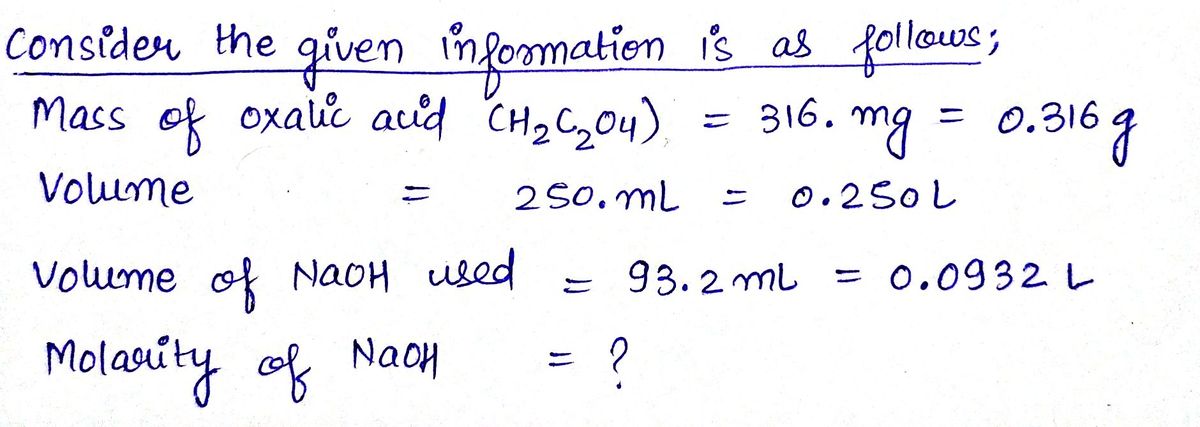 Consider the given information is as follows;
Mass of oxalic acid (H₂C₂O₄) = 316. mg = 0.316 g
Volume = 250. mL = 0.250 L
Volume of NaOH used = 93.2 mL = 0.0932 L
Molarity of NaOH = ?